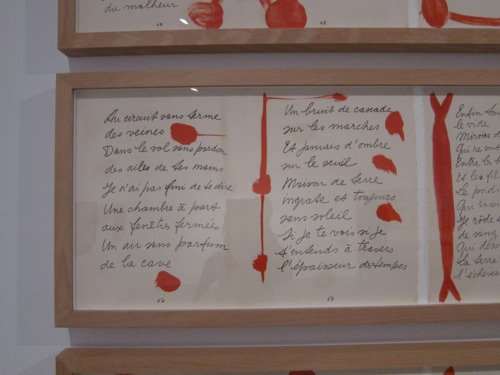 du malheur
Au circuit sans terme
des veines
Dans le vol sans pardon
des ailes de tes mains
Je n'ai pas fini de te dire
Une chambre à part
aux fenêtres fermées
Un air sans parfum
de la cave
Un bruit de cascade
sur les marches
Et jamais d'ombre
sur le seuil
Maison de terre
ingrate et toujours
sans soleil
Si je te vois si je
t'entends à travers
l'épaisseur des temps
Enfin
le vide
Qui
Entre le
Et les
Le
Qui
Le
de sang
Qui
La terre